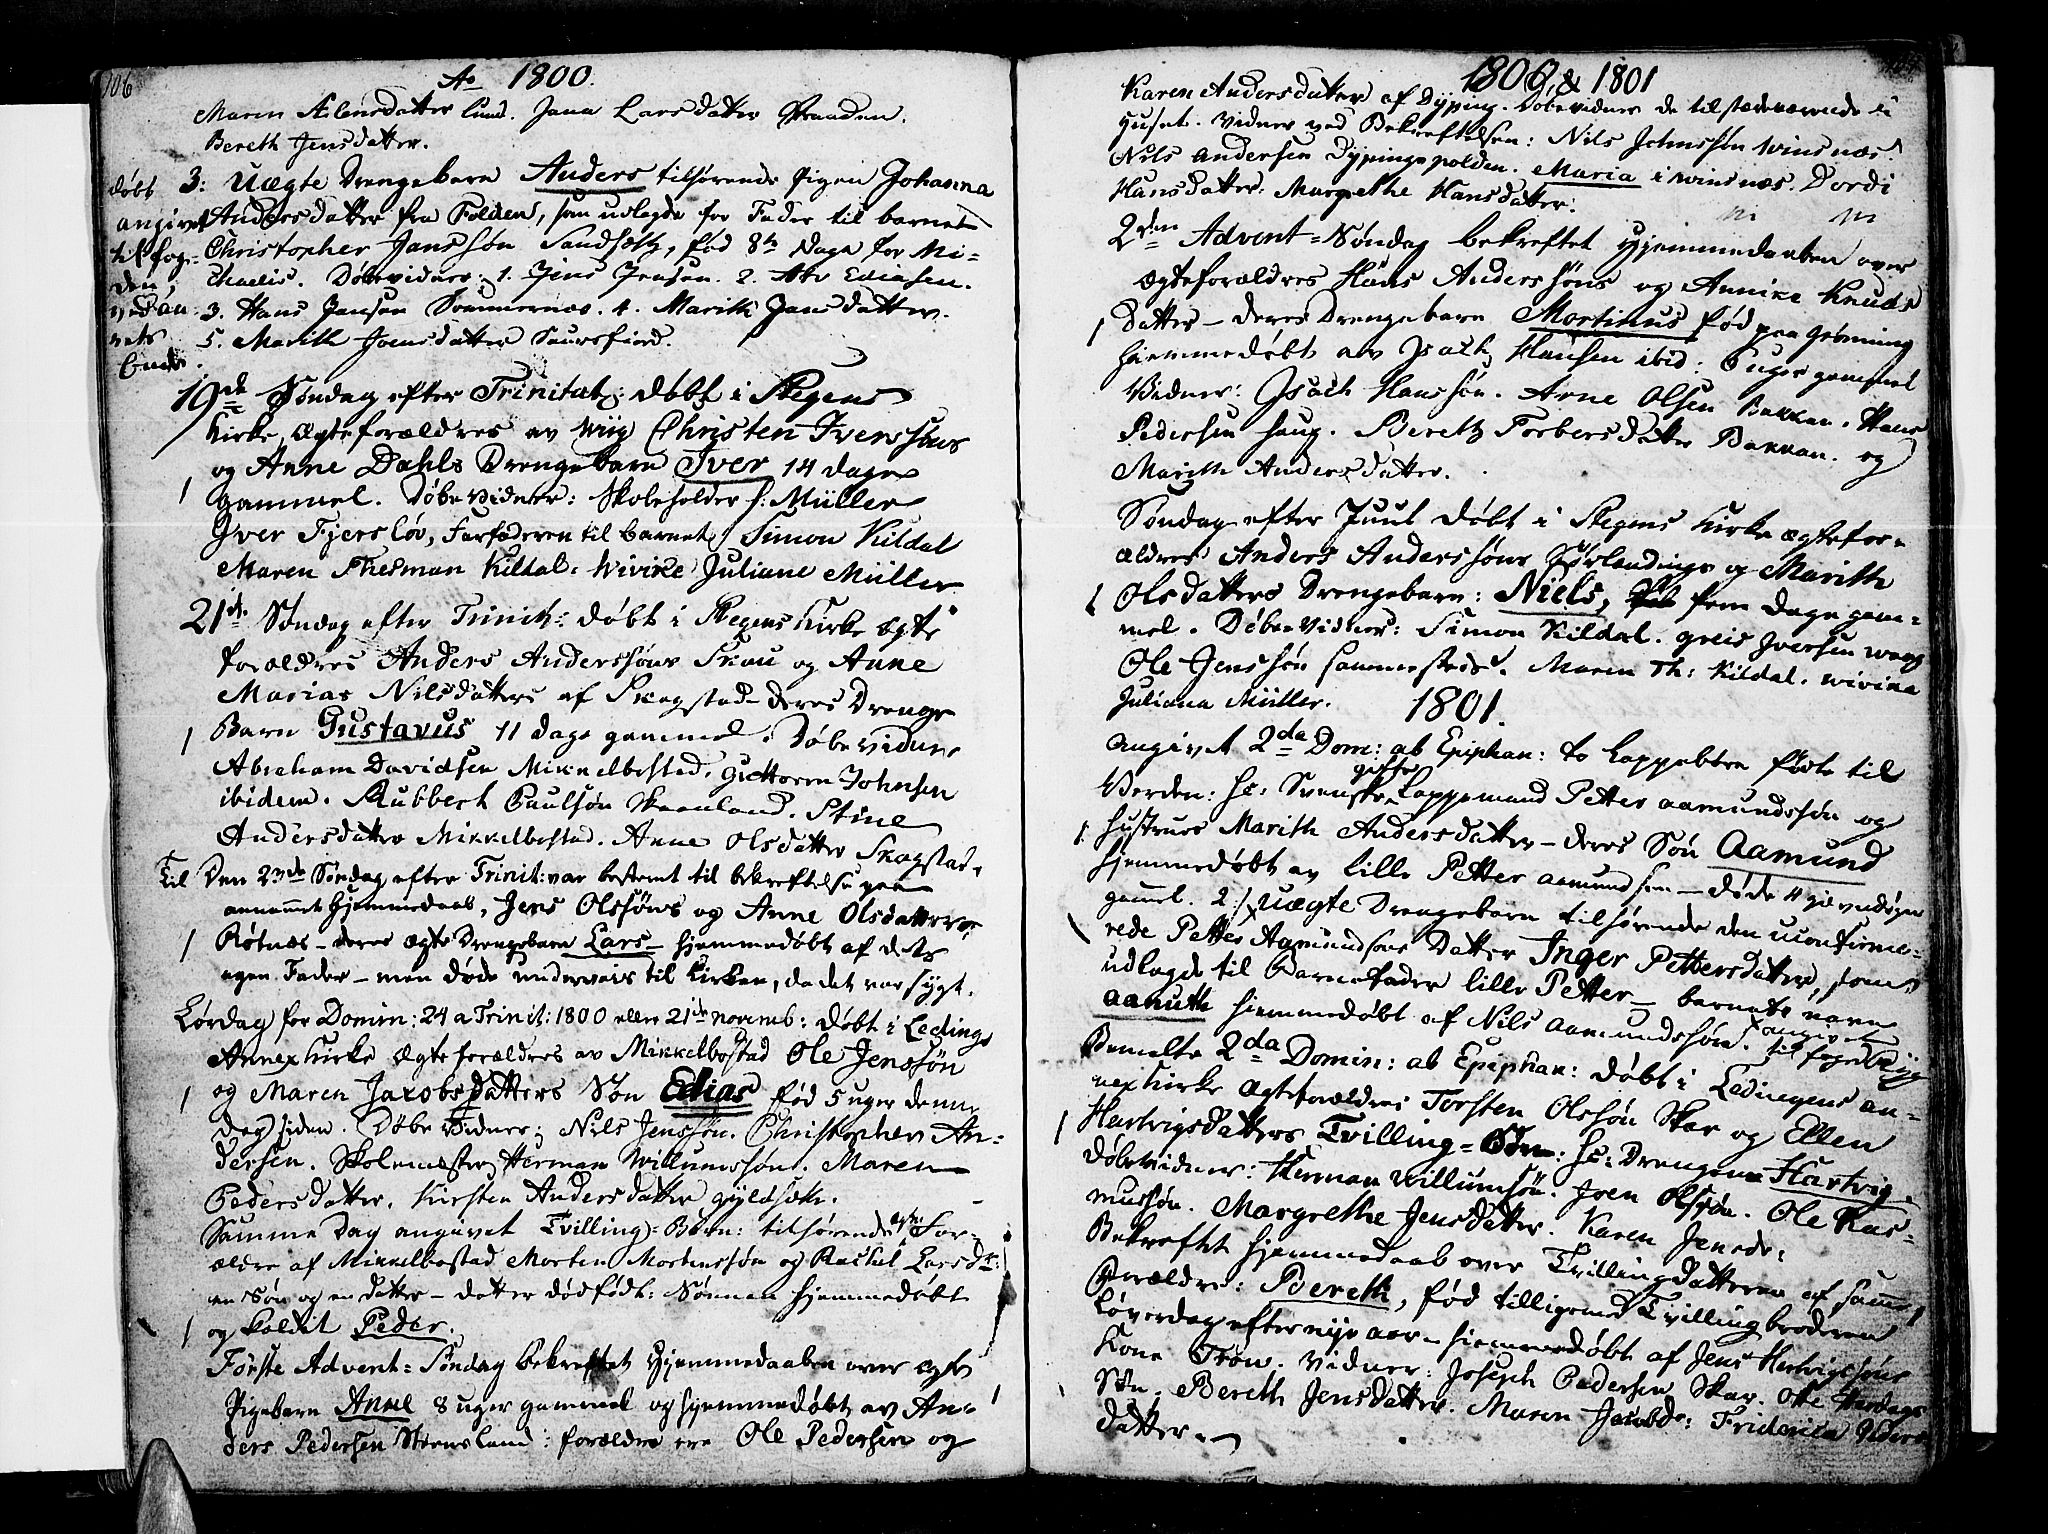 106
Ao 1800.
Maren Lund. Jana Larsdatter
Bereth Jensdatter.
3: Uægte Drengebarn Anders tilhørende Pigen Johanna
Andersdatter fra Folden, som udlagde for Fader til barnet
Christopher Janssøn fød 8te Dage for Mi-
chaelis. Døbevidner: 1. Jens Jensen. 2.
3. Hans Jensen Sommernæs. 4. Marith Jansdatter.
5. Marith Joensdatter
døbt
angivet
til fog-
den,
ved
19de Søndag efter Trinitat: døbt i Stegens
Kirke ægteforældres av Wiig Christen Iverssøns
og Anne Dahls Drengebarn Iver 14 dage
1 gammel. Døbevidner: Skoleholder H: Müller
Iver Fjersløv, Farfaderen til barnet, Simon Kildal
Maren Kildal. Wivike Juliane Müller
21de Søndag efter Trinit: døbt i Stegens Kirke ægte
forældres Anders Anderssøns Skau og Anne
Marias Nilsdatters af Skagstad deres Drenge
1 Barn Gustavus 11 dage gammel. Døbevidner
Abraham Davidsen Mikkelbostad. Guttorm Johnsen
ibidem. Rubbert Paulsøn Skaanland. Stine
Andersdatter Mikkelbostad. Anne Olsdatter Skagstad.
Til Den 23de Søndag efter Trinit: var bestemt til bekreftelse paa
annammet Hjemmedaab, Jens Olssøns og Anne Olsdatters
1 Røtnæs - deres ægte Drengebarn Lars - hjemmedøbt af dets
egen Fader - men døde underveis til Kirken, da det var sygt.
Lørdag for Domin: 24 a Trinit: 1800 eller 21de novemb: døbt i Ledings
Annex Kirke Ægteforældres av Mikkelbostad Ole Jenssøn
1 og Maren Jacobsdatters Søn Edias fød 5 uger denne
Dag siden. Døbevidner: Nils Jenssøn. Christopher An-
dersen. Skolemester Herman Willumssøn. Maren
Pedersdatter. Kirsten Andersdatter
Samme Dag angivet Tvilling-Børn: tilhørende ægte For-
ældre af Mikkelbostad Morten Mortenssøn og Rachel Larsdr:
en Søn og en datter - datter dødfødt: Sønnen hjemmedøbt
1 og kaldet Peder.
Første Advent-Søndag bekreftet Hjemmedaaben over ægte
Pigebarn Anne 8 uger gammel og hjemmedøbt av An- 1
ders Pedersen forældre ere Ole Pedersen og
1800 & 1801
Karen Andersdatter af Dyping. Døbevidner de tilstedeværende i
Huset. Vidner ved Bekreftelsen: Nils Johnssøn Winsnæs.
Nils Andersen Dypingspolden. Maria i Winsnæs. Dordi
Hansdatter. Margrethe Hansdatter.
2den Advent-Søndag bekreftet Hjemmedaaben over
ægteforældres Hans Anderssøns og Annike Knuds
1 Datter - deres Drengebarn Mortinus fød paa Grønning
hjemmedøbt av Isach Hansen ibid. uger gammel
Vidner: Isach Hanssøn. Arne Olsen Bakken. Hans
Pedersen Haug. Bereth Torbersdatter Bakkan. og
Marith Andersdatter.
Søndag efter Juul døbt i Stegens Kirke ægtefor-
ældres Anders Anderssøns Sørlandings og Marith
1 Olsdatters Drengebarn: Niels, fem Dage gam-
mel. Døbevidner: Simon Kildal. Greis Iversen Wang
Ole Jenssøn sammesteds. Maren Th: Kildal. Wivika
Juliana Müller.
1801.
Angivet 2da Dom: ab Epiphan: to Lappebørn fødte til
Verden: Sc: Svenske gifte Lappemand Petter Aamundssøn og
1. Hustrues Marith Andersdatter - deres Søn Aamund
Hjemmedøbt av lille Petter Aamundsen - døde
gamel. 2:/ Uægte Drengebarn tilhørende den uconfirme-
rede Petter Aamundsens Datter Inger Pettersdatter, som
udlagde til Barnefader lille Petter - barnets navn
Aanuth hjemmedøbt af Nils Aamundssøn. angivet
til fogden
Bemelte 2da Domin: ab Epiphan: døbt i Ledingens An-
nex Kirke Ægteforældres Torsten Olssøn Skar og Ellen
1 Hartvigsdatters Tvilling-Børn: Sc: Drengen Hartvig.
Døbevidner: Herman Willumsøn. Joen Olssøn. Ole Ras-
mussøn. Margrethe Jensdatter. Karen Jensdr:
Bekreftet hjemmedaab over Tvillingdatteren af samme 1
Forældre: Bereth, fød tilligemed Tvillingbroderen
Løverdag efter nyt aar - hjemmedøbt af Jens Hertvigssøns
Kone Vidner: Joseph Pedersen Skar. Ole
Søn. Bereth Jensdatter. Maren Jacobdr: Friderica Peders
datter.